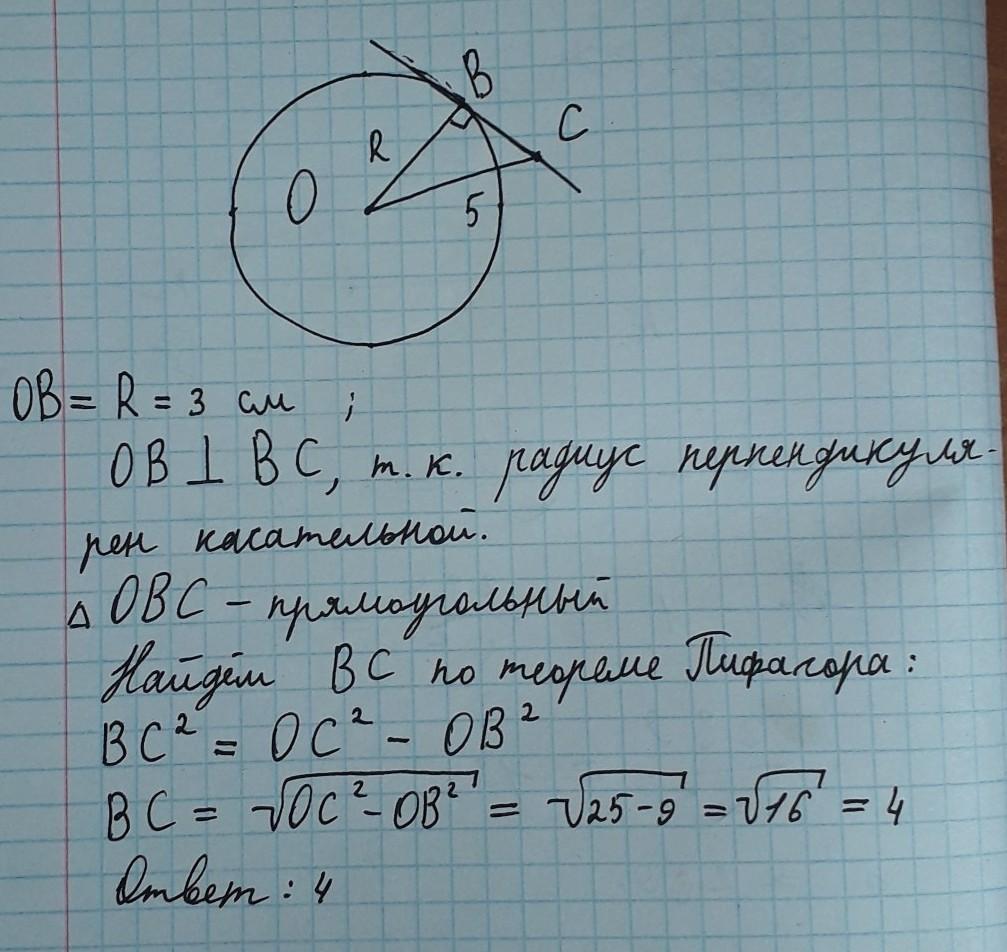 B
C
R
O
5
OB = R = 3 см ;
OB ⊥ BC, т. к. радиус перпендикуля-
рен касательной.
△ OBC – прямоугольный
Найдём BC по теореме Пифагора:
BC² = OC² – OB²
BC = √OC² – OB² = √25 – 9 = √16 = 4
Ответ : 4